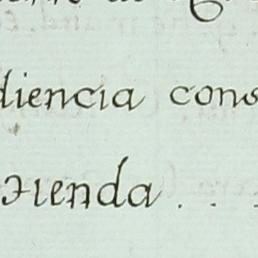 diencia cons
zienda . . .